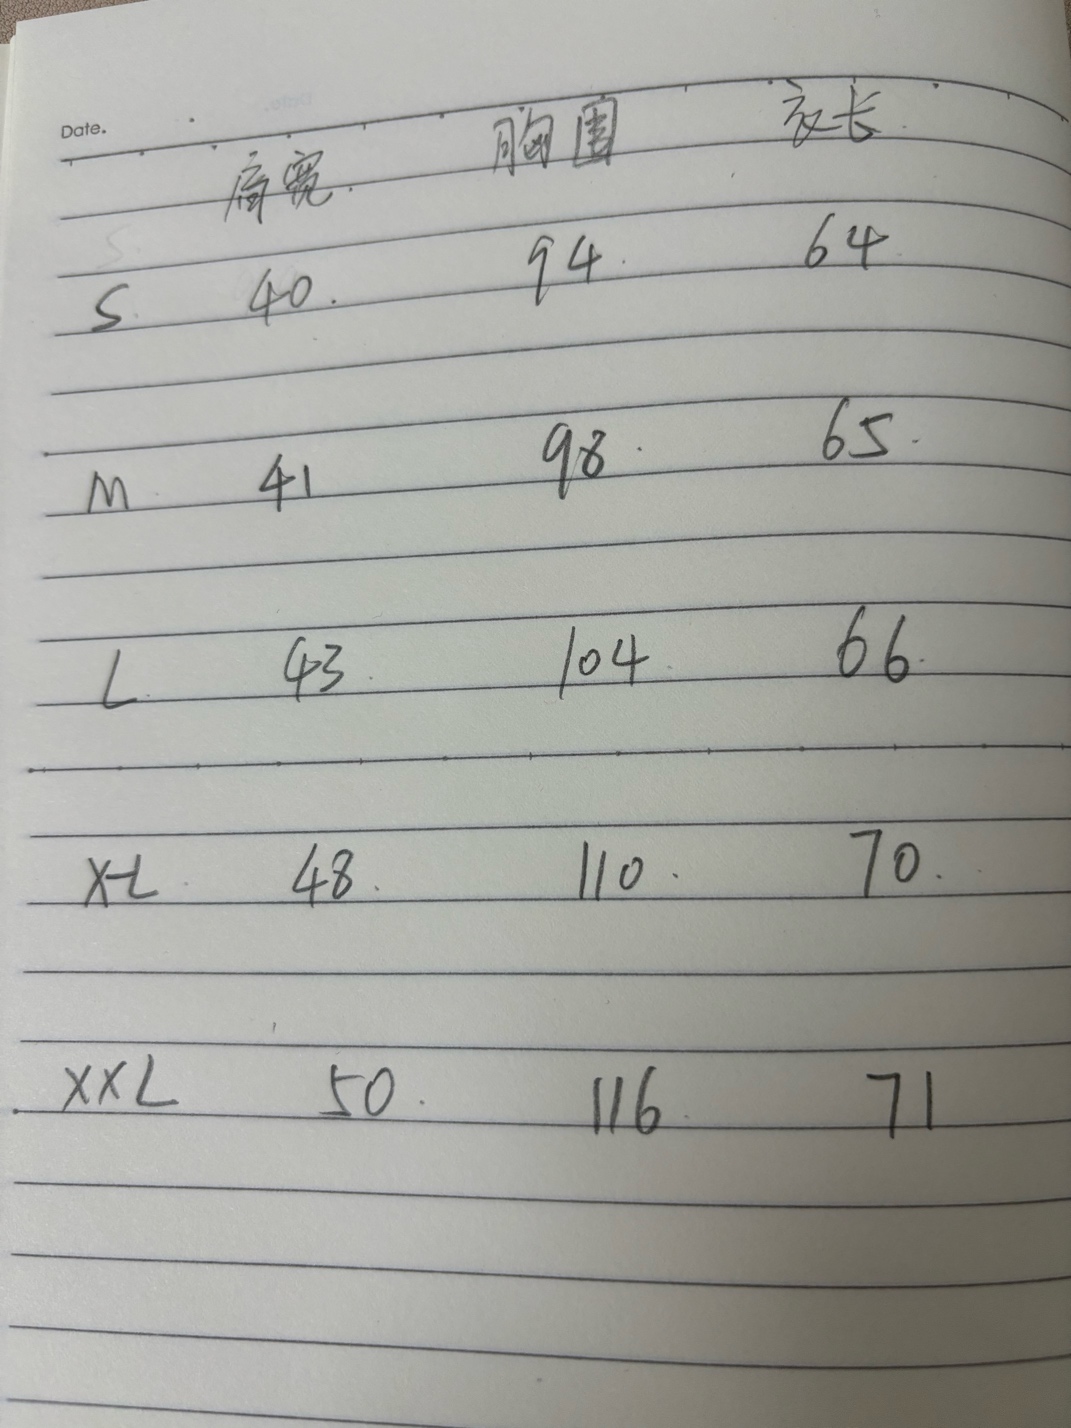 Date.
肩宽 胸围 衣长
S 40 94 64
M 41 98 65
L 43 104 66
XL 48 110 70
XXL 50 116 71